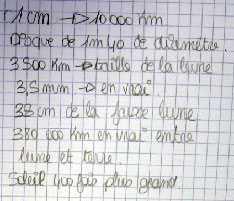 1 cm → 10 000 Km
Disque de 1m40 de diamètre.
3 500 Km → taille de la lune
3,5mm → en vrai
38 cm de la fausse lune
380 000 Km en vrai entre
lune et terre.
Soleil 400 fois plus grand